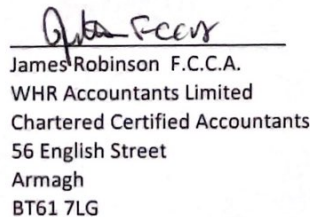 James Robinson F.C.C.A.
WHR Accountants Limited
Chartered Certified Accountants
56 English Street
Armagh
BT61 7LG